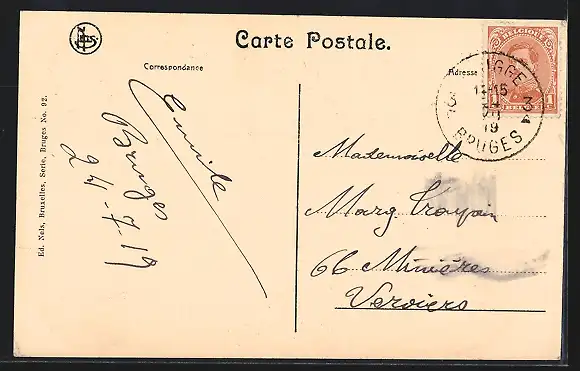 Carte Postale.
Correspondance
Adresse
BELGIQUE
1 1
BRUGGE
3 3
19
BRUGES
Ed. Nels, Bruxelles, Serie, Bruges No. 92.
Emile
Bruges
24-7-19
Mademoiselle
Marg
66 Minières
Verviers